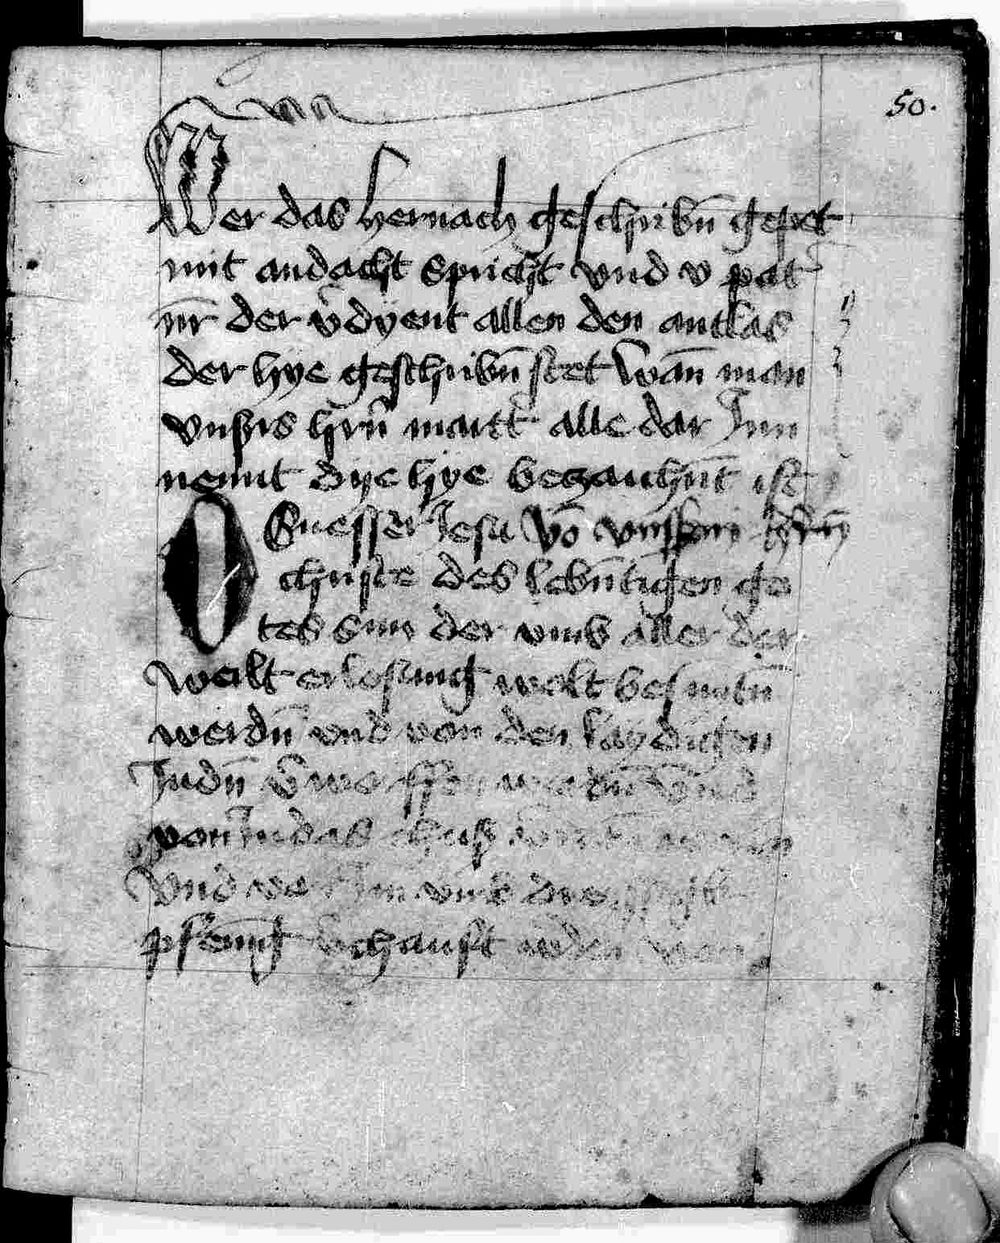 50.
Wer das hernach geschribn̄ gepet
mit andacht spricht vnd v pat
nr̄ der v̄dyent allen den antlas
der hye geschribn̄ stet wan̄ man
vnsers hrn̄ mart alle dar Inn
nennt dye hye bezaichn̄t ist
O Suesser Jesu vō vnserm hrn̄
christe des lebn̄tigen go
tes sun der vmb aller der
welt erlosung wolt besnitn̄
werdn̄ vnd von den laydigen
Judn̄ v̄worffen werdn̄ vnd
von Judas chus
vnd vmb dreyssigk
pfenng v̄chauft wden